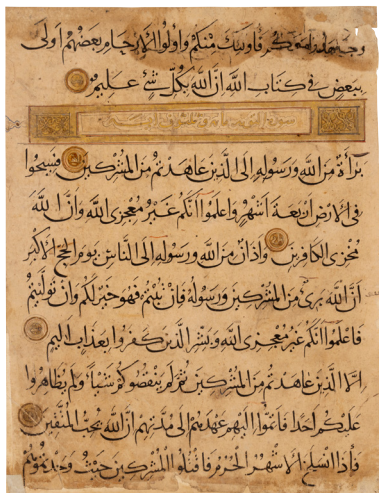 وجهدوا معكم فاوليك منكم واولوا الارحام بعضهم اولى
ببعض في كتاب الله ان الله بكل شئ عليم
سورة التوبة مائة وتسع
براة من الله ورسوله الى الذين عاهدتم من المشركين فسيحوا
في الارض اربعة اشهر واعلموا انكم غير معجزي الله وان الله
مخزي الكافرين واذان من الله ورسوله الى الناس يوم الحج الاكبر
ان الله بري من المشركين ورسوله فان تبتم فهو خير لكم وان توليتم
فاعلموا انكم غير معجزي الله وبشر الذين كفروا بعذاب اليم
الا الذين عاهدتم من المشركين ثم لم ينقصوكم شيئا ولم يظاهروا
عليكم احدا فاتموا اليهم عهدهم الى مدتهم ان الله يحب المتقين
فاذا انسلخ الاشهر الحرم فاقتلوا المشركين حيث وجدتموهم